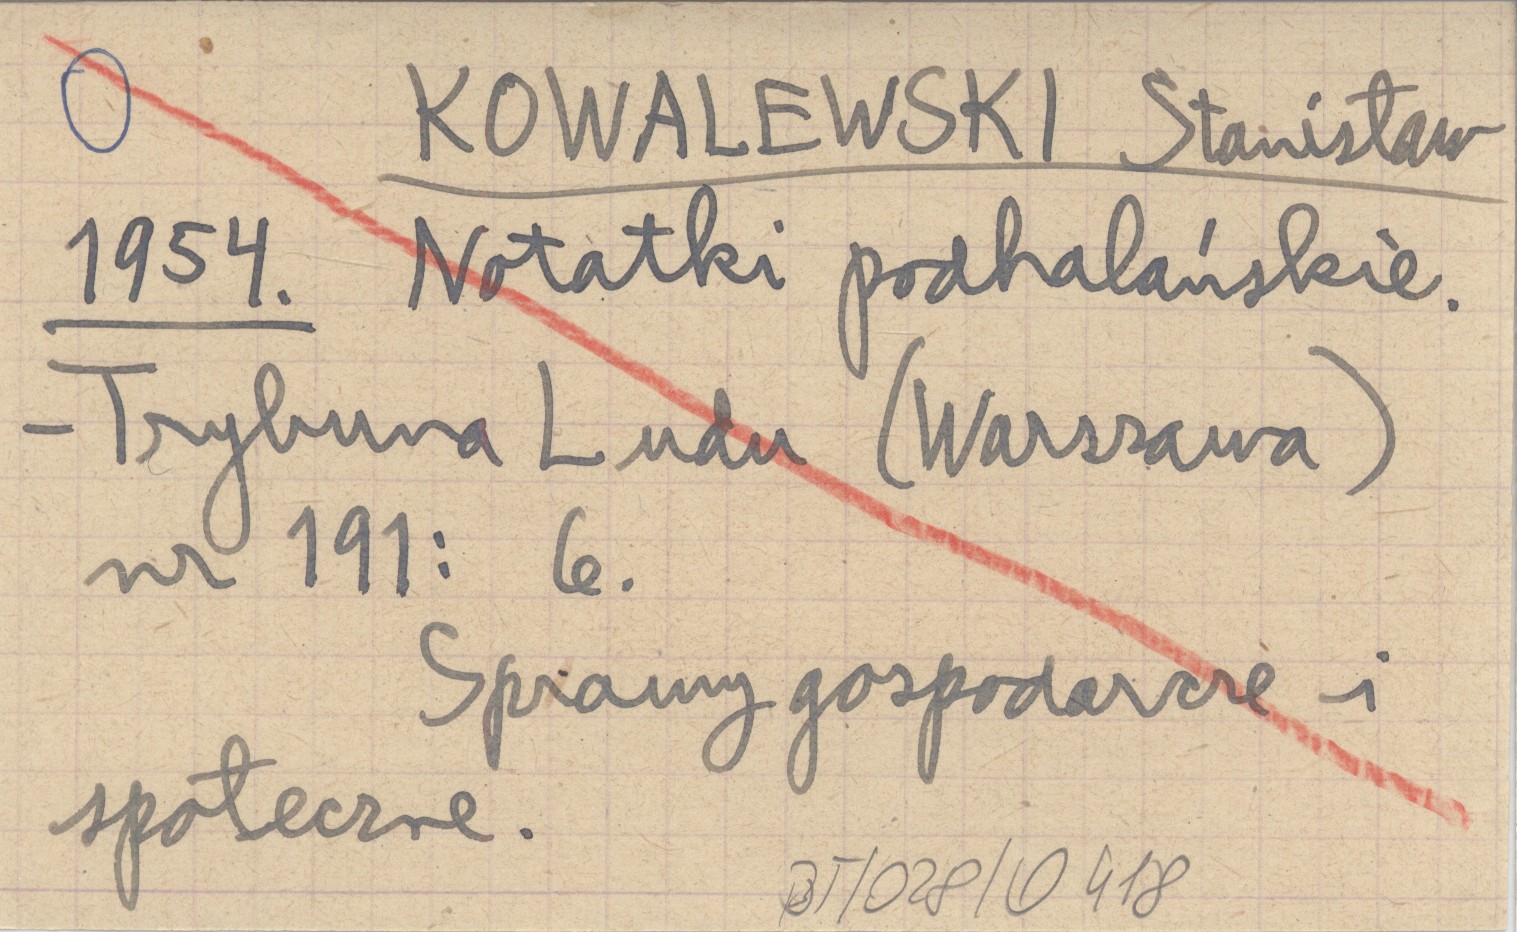 KOWALEWSKI Stanisław
1954. Notatki podhalańskie.
- Trybuna Ludu (Warszawa)
nr 191: 6.
Sprawy gospodarcze i
społeczne.
BT/028/0418